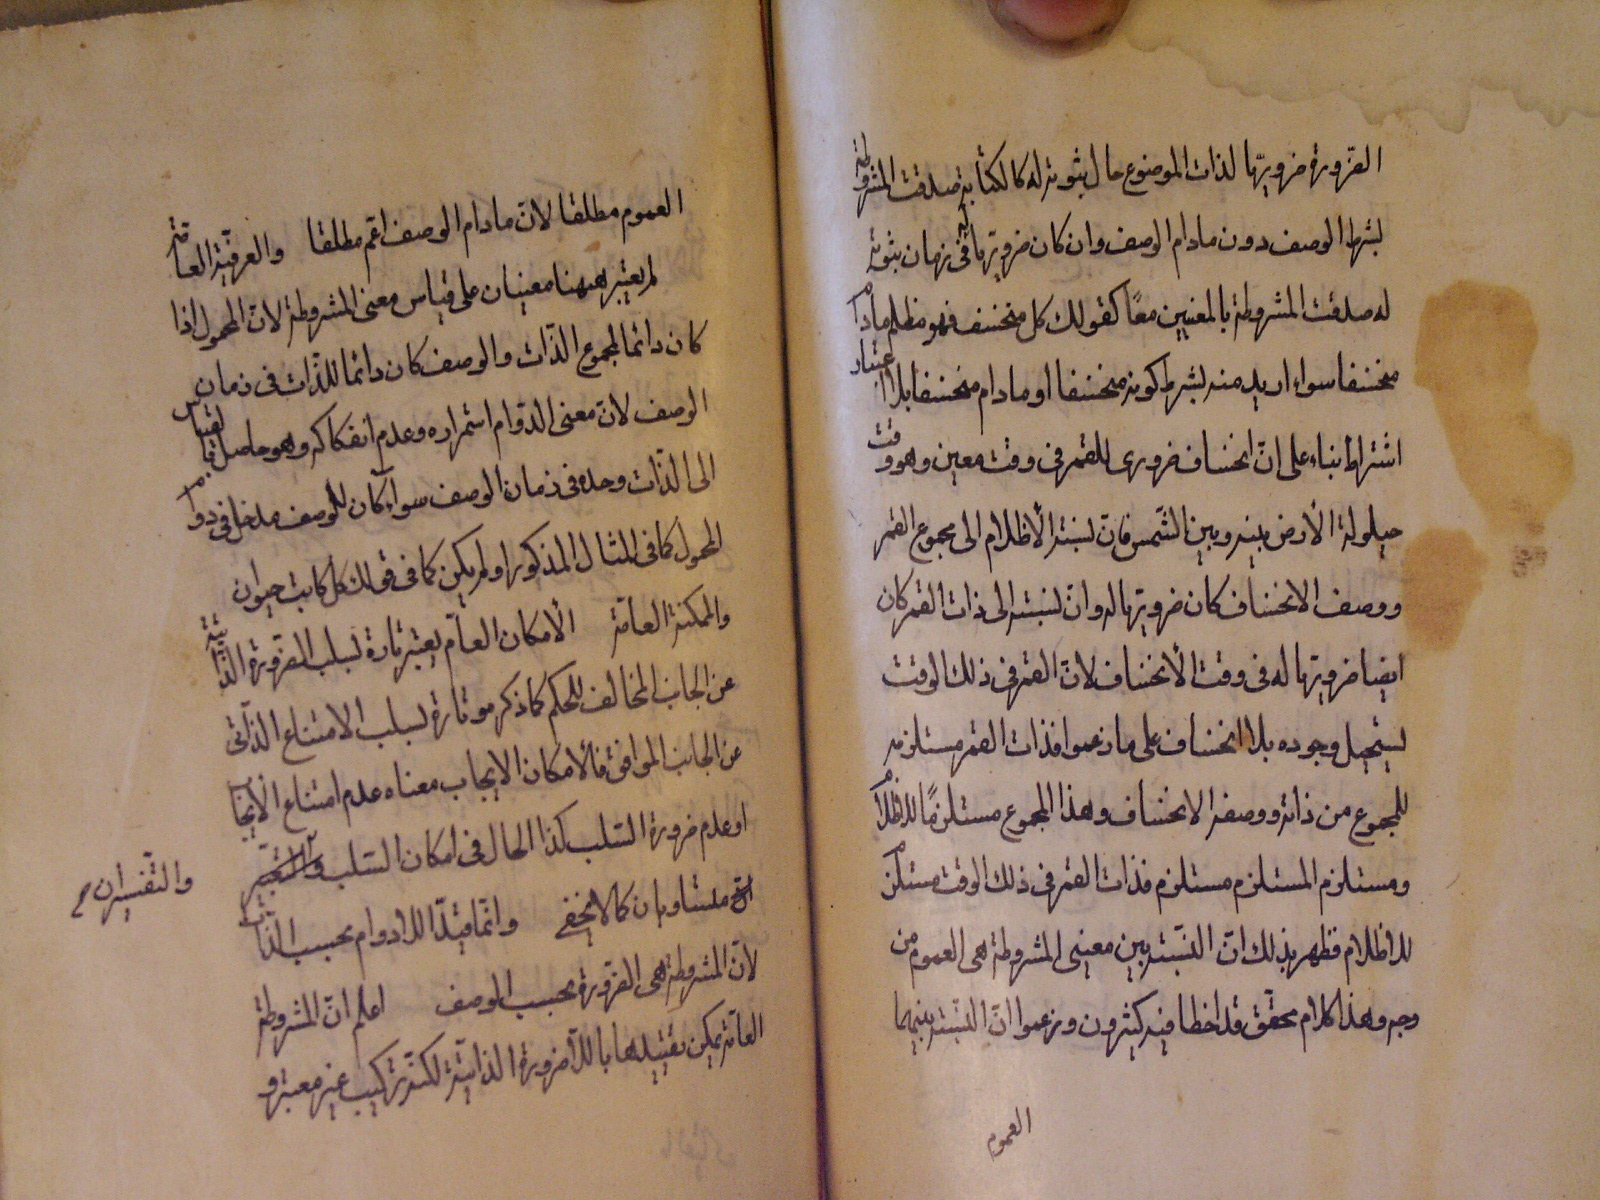 الضرورة ضروريا لذات الموضوع حال ثبوته له كالكتابة صدقت المشروطة
بشرط الوصف دون مادام الوصف وان كان ضروريا له فى زمان ثبوته
له صدقت المشروطة بالمعنيين معًا كقولك كل منخسف فهو مظلم مادام
منخسفا سواء اريد منه بشرط كونه منخسفا او مادام منخسفا بلا اعتبار
اشتراط بناء على ان انخساف ضرورى للقمر فى وقت معين وهو وقت
حيلولة الأرض بينه وبين الشّمس فانّ نسبة الأظلام الى مجموع القمر
ووصف الانخساف كان ضروريا له وان نسبته الى ذات القمر كان
ايضا ضروريا له فى وقت الأنخساف لانّ القمر فى ذلك الوقت
يستحيل وجوده بلا انخساف على ما زعموا فذات القمر مستلزمه
للمجموع من ذاته ووصف الانخساف وهذا المجموع مستلزمًا للاظلام
ومستلزم المستلزم مستلزم فذات القمر فى ذلك الوقت مستلزم
للاظلام فظهر بذلك انّ النسّبة بين معنيى المشروطة هى العموم من
وجه وهذا كلام محقّق قد اخطا فيه كثيرون وزعموا انّ النسّبة بينهما
العموم
العموم مطلقا لانّ مادام الوصف اعّم مطلقا والعرفّية العامّة
لم يعتبر ههنا معنيان على قياس معنى المشروطة لانّ المحمول اذا
كان دائما لمجموع الذّات والوصف كان دائما للذّات فى زمان
الوصف لانّ معنى الدّوام استمراره وعدم انفكاكه وهو حاصل بالقياس
الى الذّات وحده فى زمان الوصف سواء كان للوصف مدخل فى دوام
المحمول كما فى المثال المذكور او لم يكن كما فى قولك كل كاتب حيوان
والممكنة العامّة الأمكان العامّ يعتبر تارة لسلب الضّرورة الذّاتّية
عن الجانب المخالف للحكم كما ذكره وتارة لسلب الامتناع الذّاتى
عن الجانب الموافق فالأمكان الايجاب معناه عدم امتناع الأيجاب
او عدم ضرورة السّلب كذا الحال فى امكان السّلب
والتّفسيران
متساويان كما لا يخفى وانّما قيّد اللادوام بحسب الذّات
لانّ المشروطة هى الضّرورة بحسب الوصف اعلم انّ المشروطة
العامّة يمكن تقييدها باللاضرورة الذاتّية لكنّه تركيب غير معتبر و